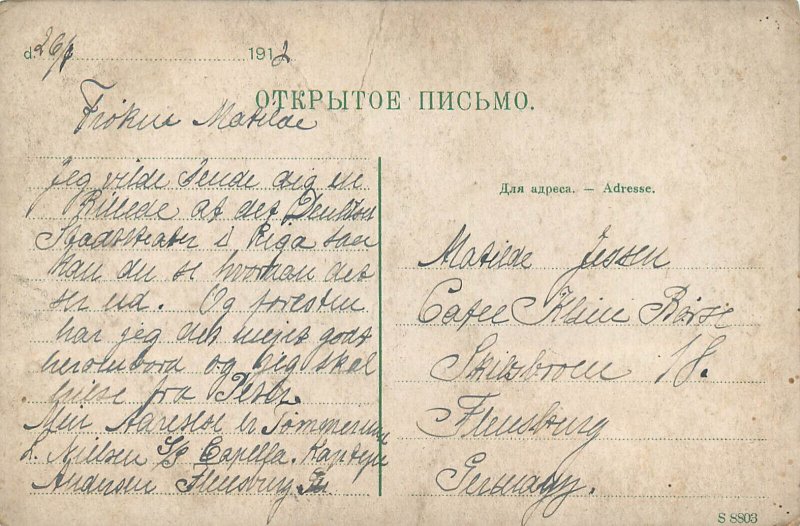 d. 26/8 1912
ОТКРЫТОЕ ПИСЬМО.
Frøken Matilde
Jeg vilde sende dig en
Billede af det
Stadstteater i Riga saa
kan du se hvordan det
ser ud. Og foresten
har jeg det meget godt
herombord og jeg skal
hilse fra Peter
Min Adresse er Tømmermand
L. Nielsen S/S Capella. Kaptejn
Andersen Flensburg
Для адреса. — Adresse.
Matilde Jessen
Cafee Kleine Börse
18.
Flensburg
Germany.
S 8803